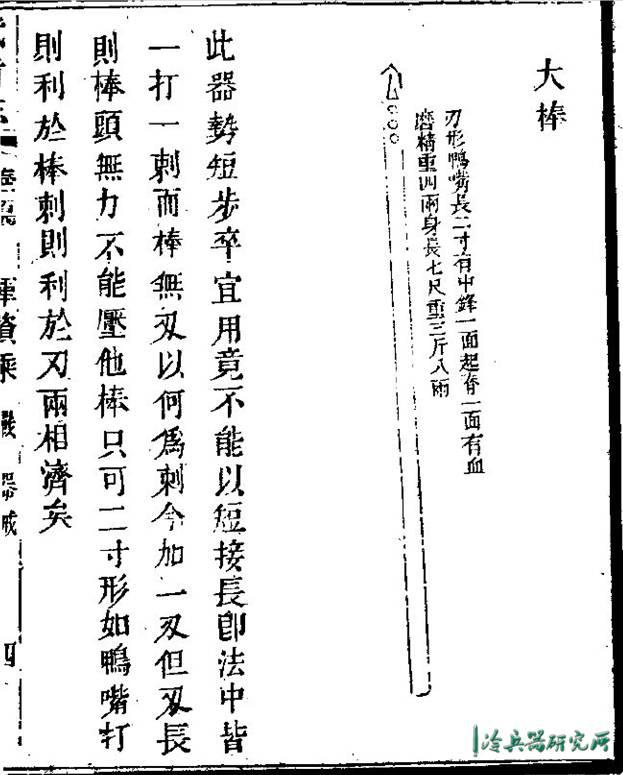 大棒
刃形鴨嘴長二寸有中鋒一面起脊一面有血
磨精重四兩身長七尺重三斤八兩
此器勢短步卒宜用竟不能以短接長即法中皆
一打一刺而棒無刃以何為刺今加一刃但刃長
則棒頭無力不能壓他棒只可二寸形如鴨嘴打
則利於棒刺則利於刃兩相濟矣
軍資乘
器械
四
冷兵器研究所